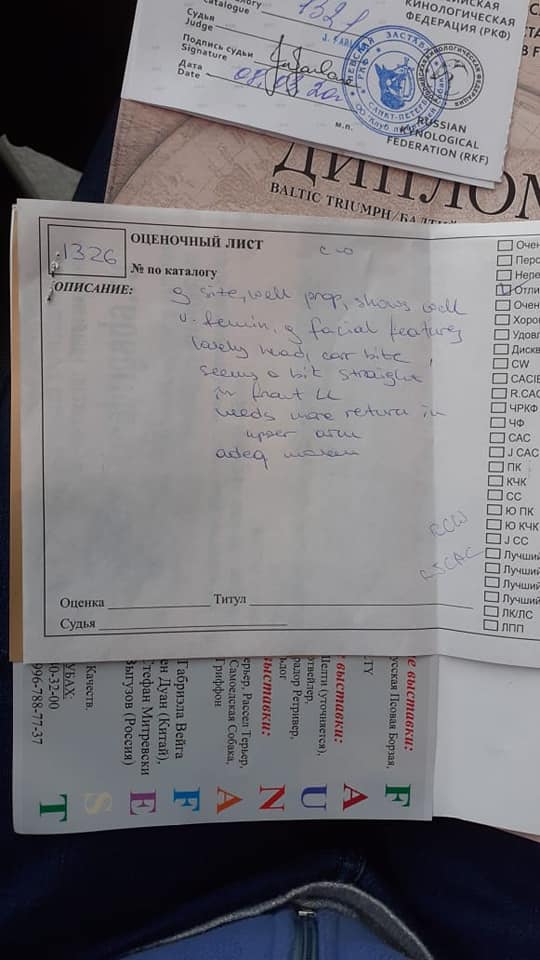 1321
Судья
Judge
Подпись судьи
Signature
Дата
Date
м.п.
КИНОЛОГИЧЕСКАЯ
ФЕДЕРАЦИЯ (РКФ)
RUSSIAN
CYNOLOGICAL
FEDERATION (RKF)
ДИПЛОМ
BALTIC TRIUMPH/
1326
ОЦЕНОЧНЫЙ ЛИСТ
№ по каталогу
ОПИСАНИЕ:
g size, well prop, shows well
v. femin, g facial features
lovely head, corr bite
seems a bit straight
in front
needs more return in
upper arm
adeq
RCW
RJCAC
Оценка
Титул
Судья
Очен
Перс
Непе
Отли
Очен
Хоро
Удовл
Диске
CW
CACIE
R.CAC
ЧРКФ
ЧФ
CAC
J CAC
ПК
КЧК
СС
Ю ПК
Ю КЧК
J CC
Лучший
Лучший
Лучший
Лучший
ЛК/ЛС
ЛПП
FAUNA FEST
е выставки:
усская Псовая Борзая,
ТУ
е выставки:
Шелти (уточняется),
твейлер,
радор Ретривер,
ьдог
выставки:
ерьер, Рассел Терьер,
Самоедская Собака,
Гриффон
Габриэла Вейга
ен Дуан (Китай),
Стефан Митревски
Выгузов (Россия)
Качеств.
УБАХ:
0-32-00
996-788-77-37